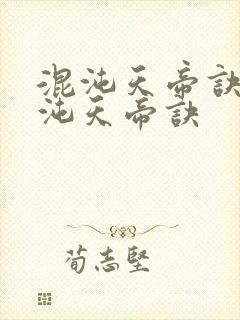 混沌天帝訣
沌天帝訣
荀志堅